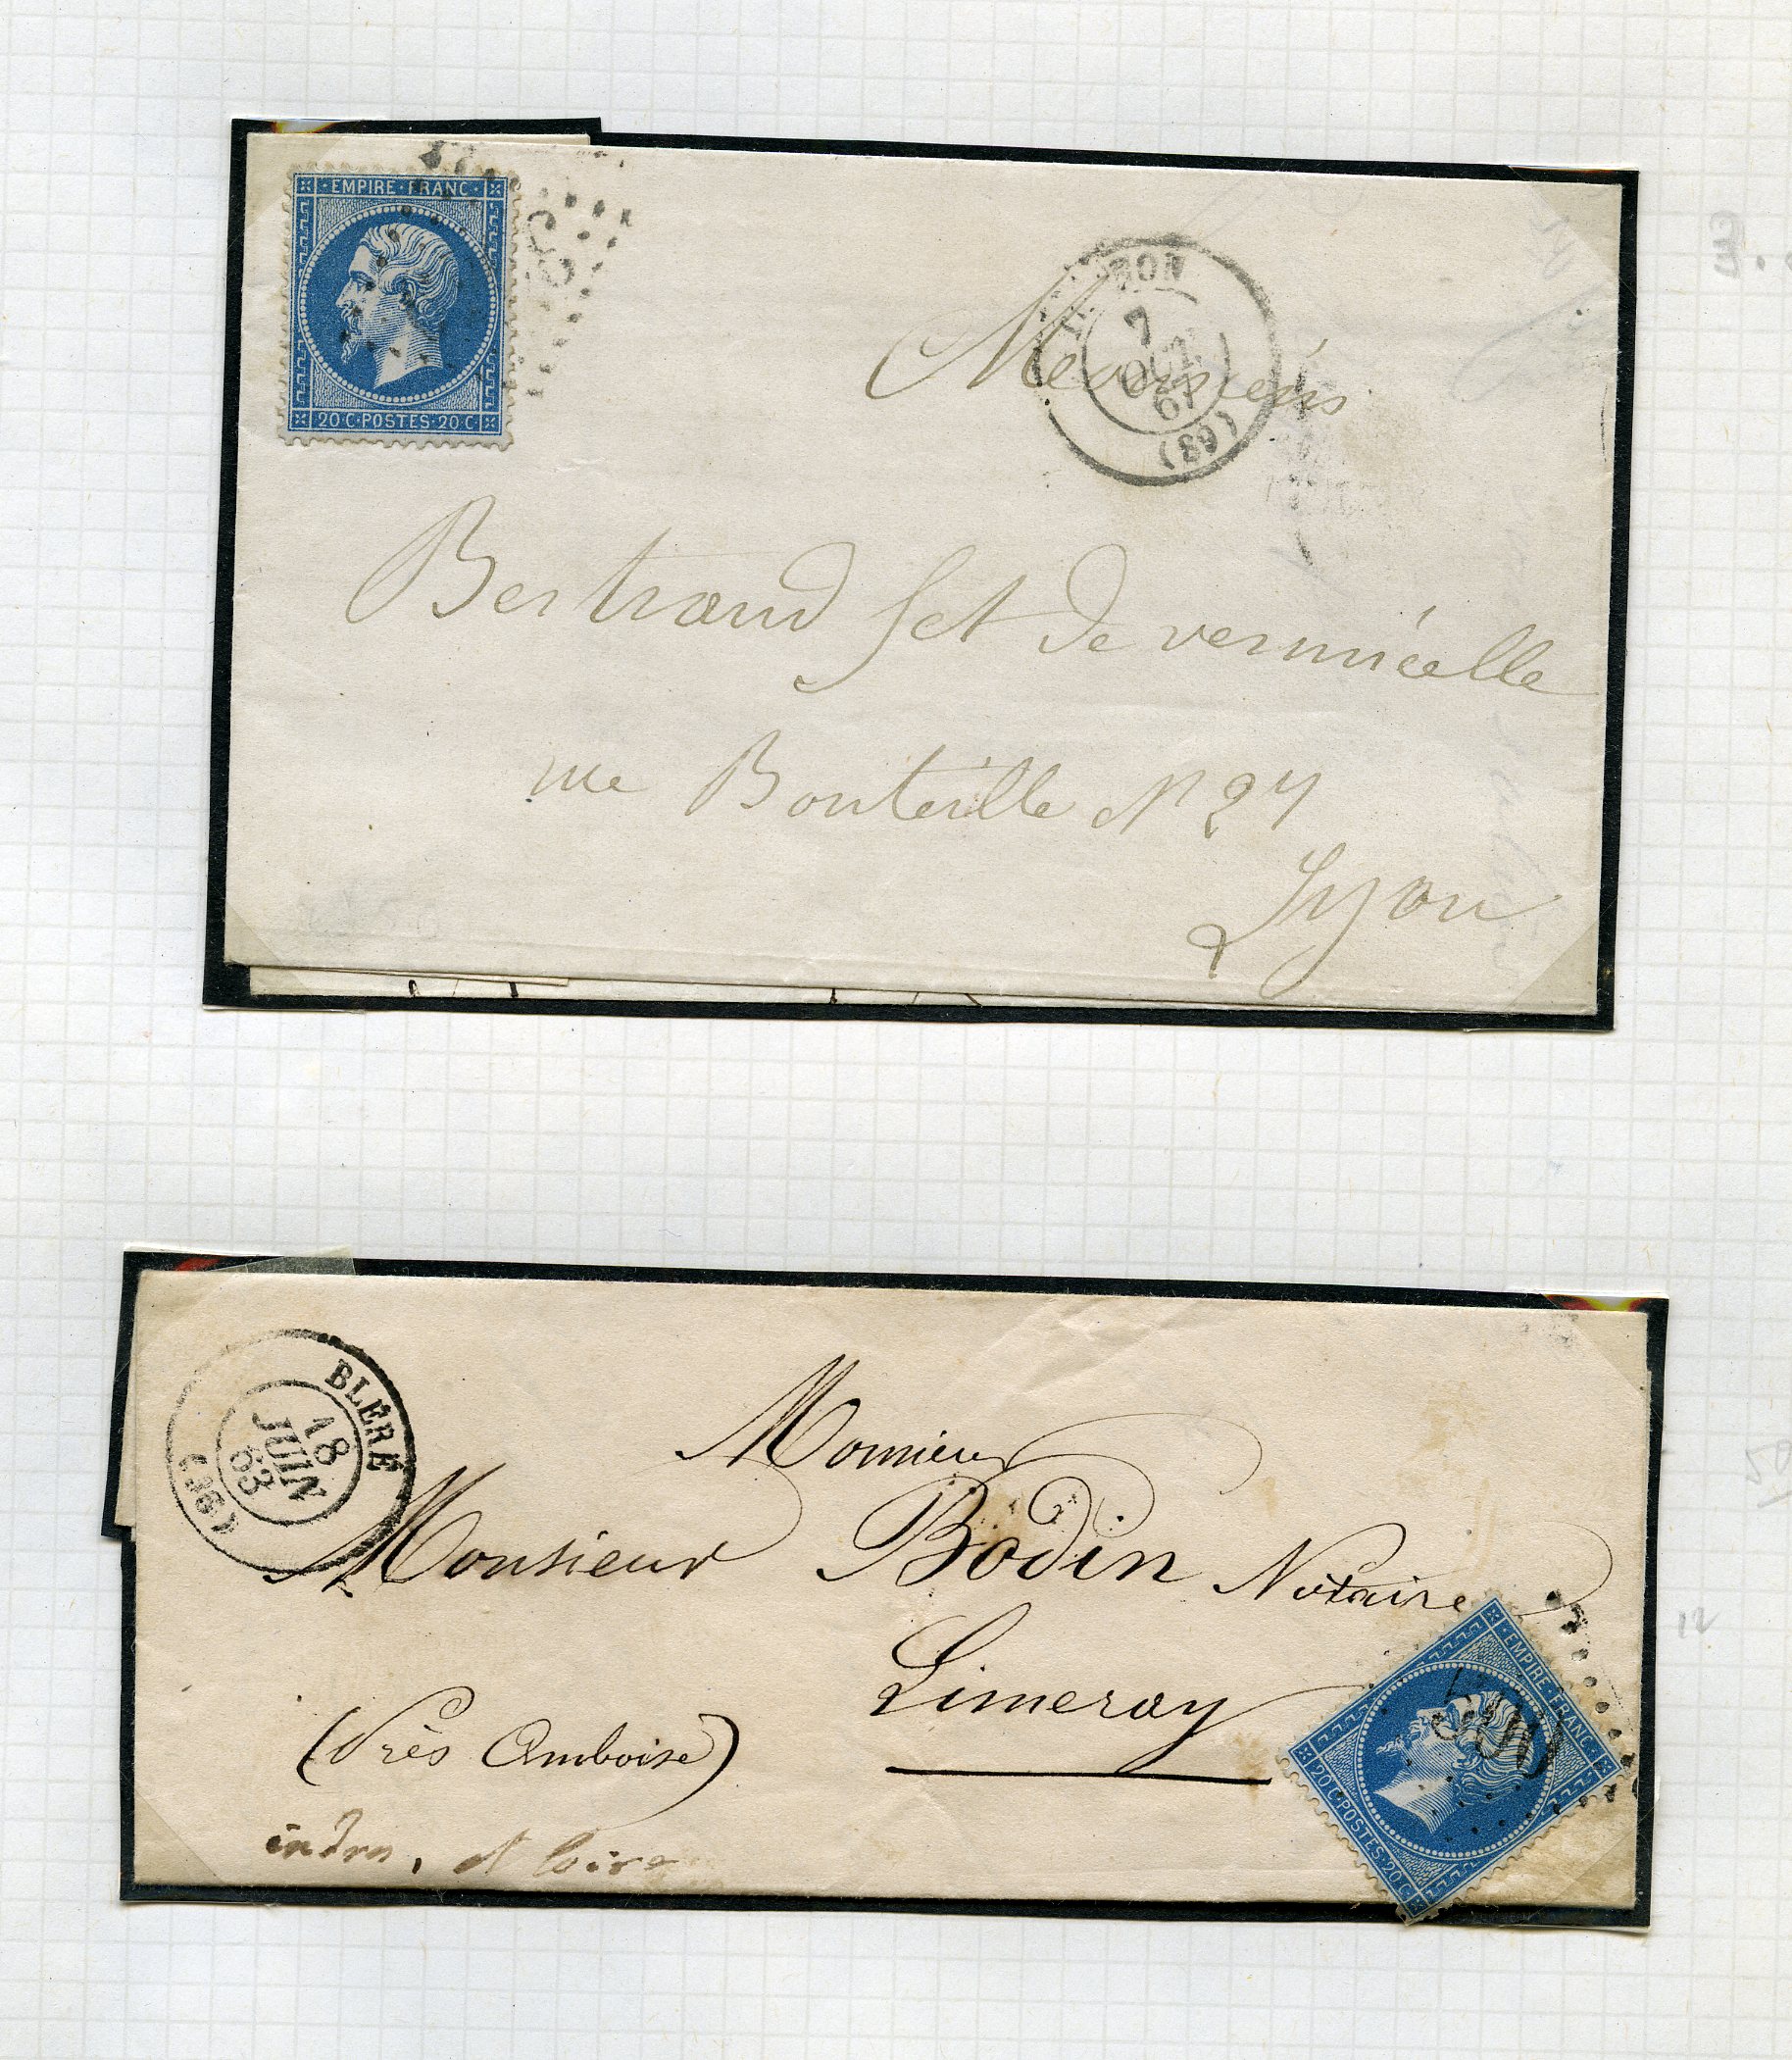 EMPIRE·FRANC·
20·C·POSTES·20·C
7
OCT.
67
(89)
Bertrand fct de vermicelle
rue Bouteille N 27
Lyon
BLÉRÉ
18
JUIN
63
(36)
Monsieur
Monsieur Bodin Notaire
Limeray
(Près Amboise)
indre, et loire
EMPIRE·FRANC·
500
20·C·POSTES·20·C
12